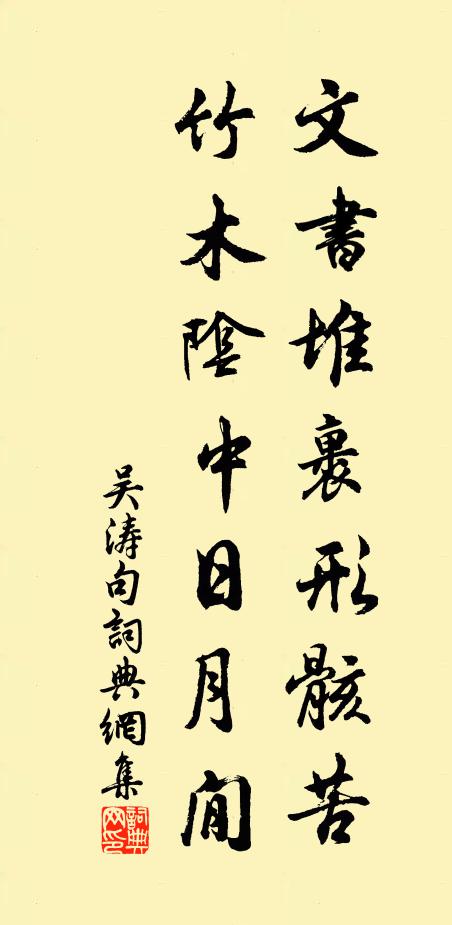 文書堆裏形骸苦
竹木陰中日月閒
吴涛句詞典網集
詞典网印